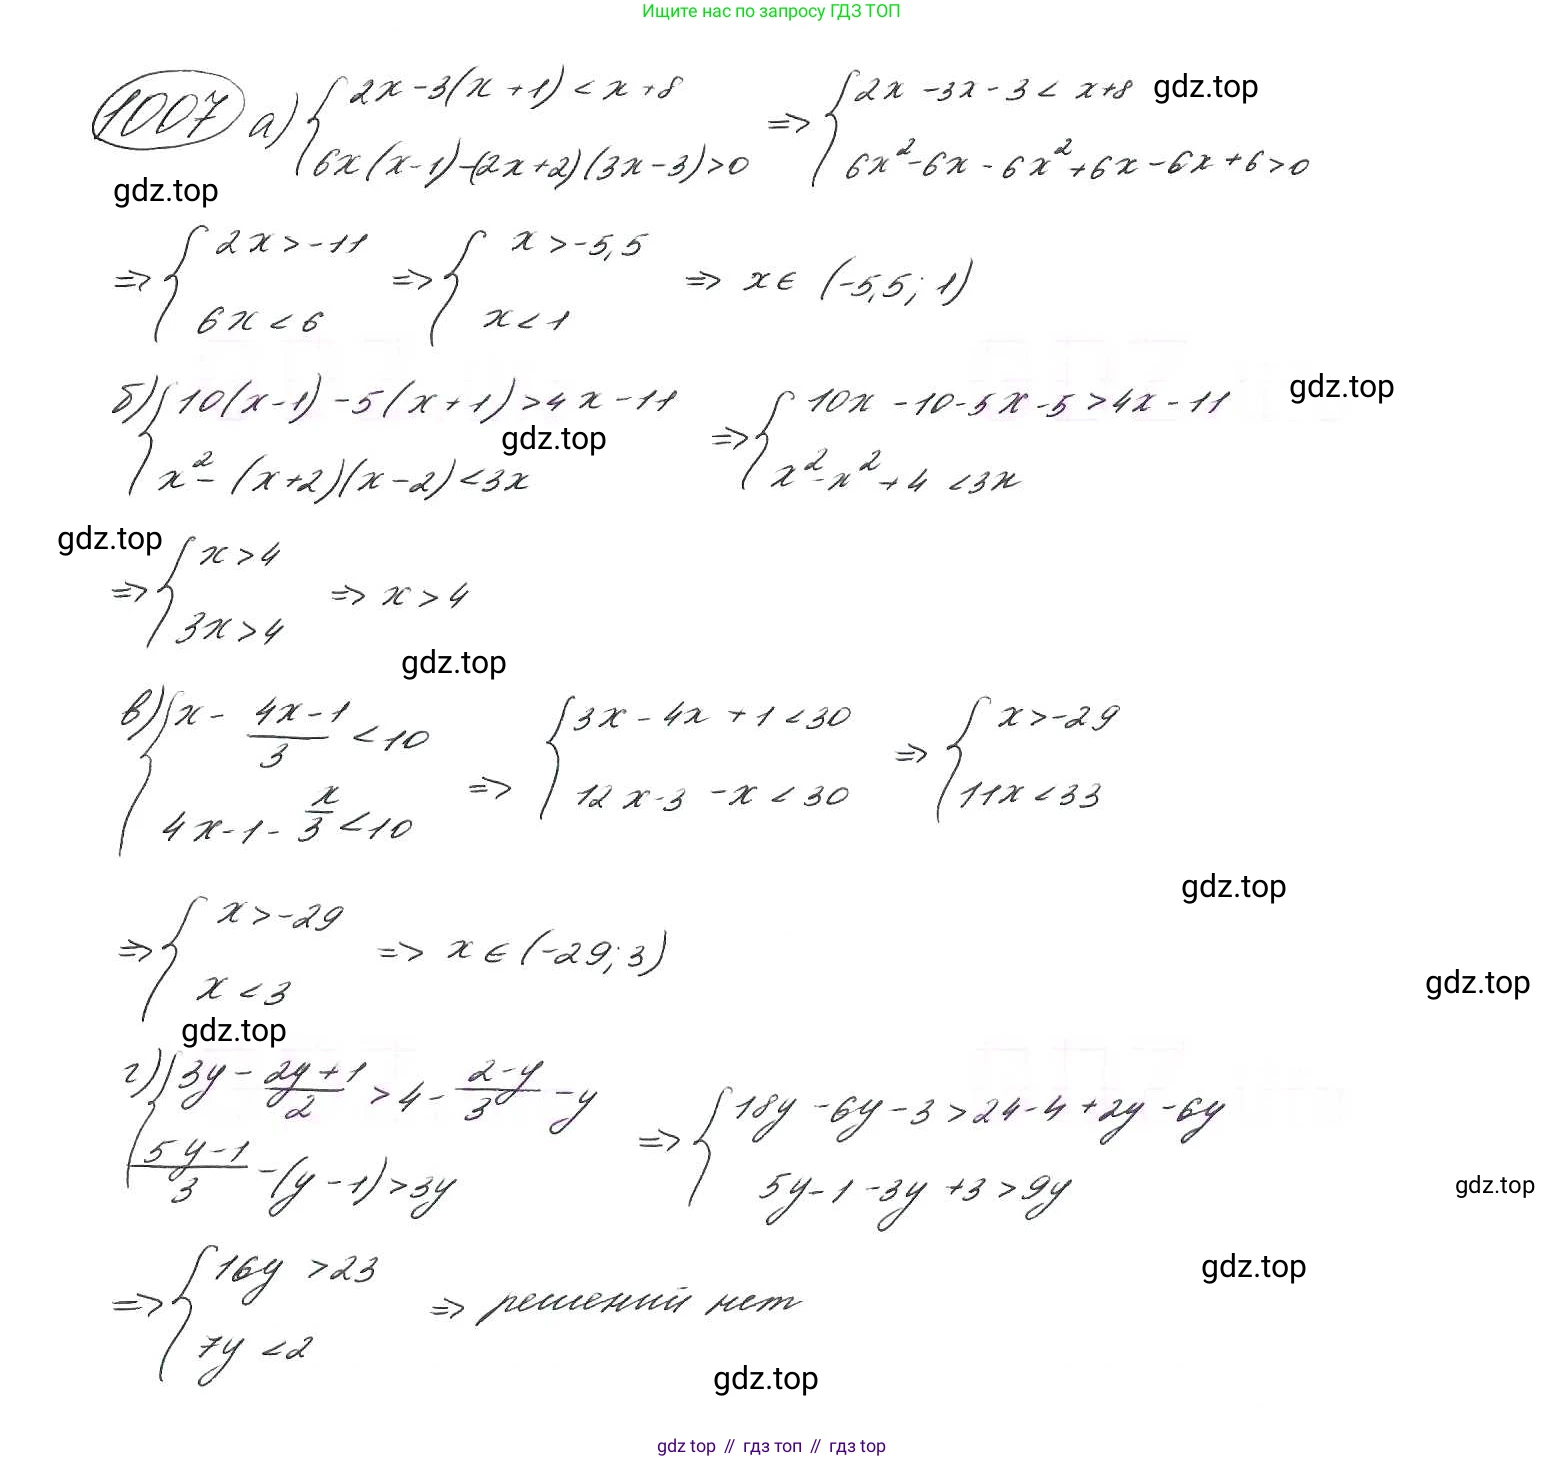 Ищите нас по запросу ГДЗ ТОП
1007 а) { 2x - 3(x + 1) < x + 8 ; 6x(x - 1) - (2x + 2)(3x - 3) > 0 => { 2x - 3x - 3 < x + 8 ; 6x² - 6x - 6x² + 6x - 6x + 6 > 0
gdz.top
gdz.top
=> { 2x > -11 ; 6x < 6 => { x > -5,5 ; x < 1 => x ∈ (-5,5; 1)
б) { 10(x - 1) - 5(x + 1) > 4x - 11 ; x² - (x + 2)(x - 2) < 3x => { 10x - 10 - 5x - 5 > 4x - 11 ; x² - x² + 4 < 3x
gdz.top
gdz.top
gdz.top
=> { x > 4 ; 3x > 4 => x > 4
gdz.top
в) { x - (4x - 1)/3 < 10 ; 4x - 1 - x/3 < 10 => { 3x - 4x + 1 < 30 ; 12x - 3 - x < 30 => { x > -29 ; 11x < 33
gdz.top
=> { x > -29 ; x < 3 => x ∈ (-29; 3)
gdz.top
gdz.top
г) { 3y - (2y + 1)/2 > 4 - (2 - y)/3 - y ; (5y - 1)/3 - (y - 1) > 3y => { 18y - 6y - 3 > 24 - 4 + 2y - 6y ; 5y - 1 - 3y + 3 > 9y
gdz.top
gdz.top
=> { 16y > 23 ; 7y < 2 => решений нет
gdz.top
gdz top // гдз топ // гдз top